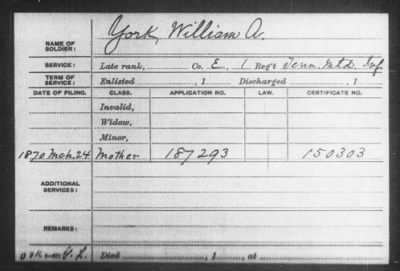 NAME OF SOLDIER: York, William A.
SERVICE: Late rank, Co. E, 1 Regt Tenn. Mtd. Inf
TERM OF SERVICE: Enlisted , 1 Discharged , 1
DATE OF FILING. CLASS. APPLICATION NO. LAW. CERTIFICATE NO.
Invalid,
Widow,
Minor,
1870 Mch. 24 Mother 187293 150303
ADDITIONAL SERVICES:
REMARKS:
G. L. Died , 1 , at